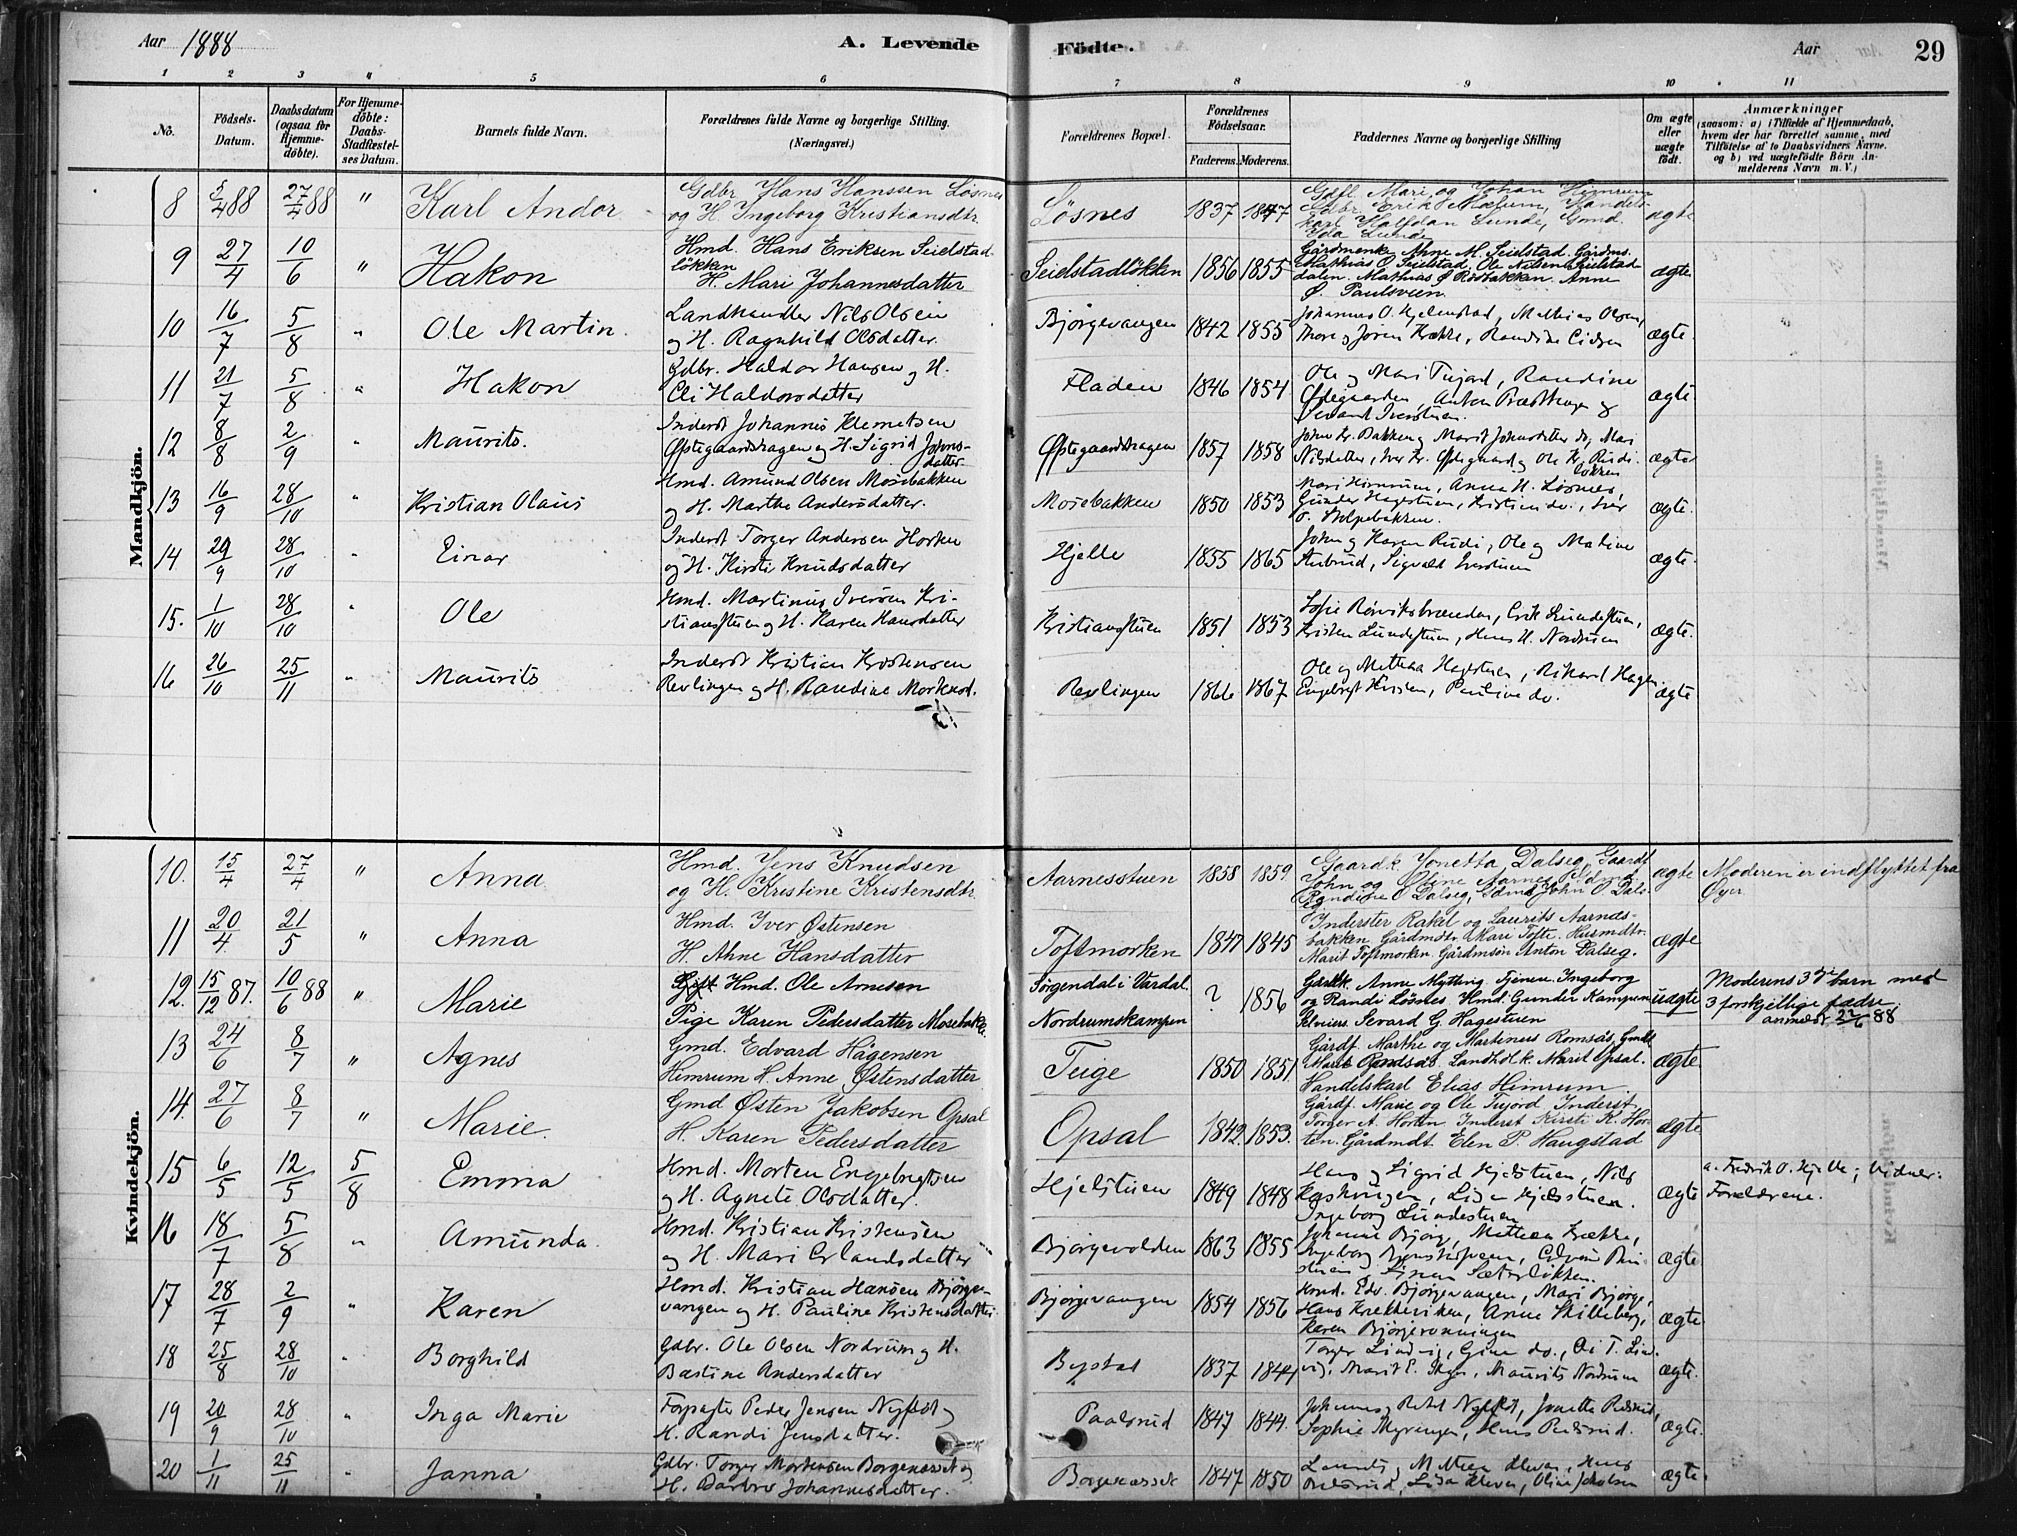 Aar 1888
A. Levende Födte.
Aar
29
1 2 3 4 5 6 7 8 9 10 11
No.
Fødsels-Datum.
Daabsdatum (ogsaa for Hjemme-døbte).
For Hjemme-døbte: Daabs-Stadfæstel-ses Datum.
Barnets fulde Navn.
Forældrenes fulde Navne og borgerlige Stilling. (Næringsvei.)
Forældrenes Bopæl.
Forældrenes Fødselsaar.
Faderens. Moderens.
Faddernes Navne og borgerlige Stilling
Om ægte eller uægte født.
Anmærkninger
(saasom: a) i Tilfælde af Hjemmedaab, hvem der har forrettet samme, med Tilföielse af to Daabsvidners Navne. og b) ved uægtefödte Börn An-melderens Navn m. V.)
Mandkjön.
8 5/4 88 27/4 88 " Karl Andor Gdbr. Hans Hanssen Løsnes
og H. Ingeborg Kristiansdtr. Løsnes 1837 1847 Gdfl. Mari og Johan Himrum
Gdbr. Erik Mælum, Handels-
karl Halfdan Lunde, Gmd.
Ida Lunde ægte
9 27/4 10/6 " Hakon Hmd. Hans Eriksen Seielstad-
løkken
H. Mari Johannesdatter Seielstadløkken 1856 1855 Gårdmenke Ahne M. Seielstad. Gårdms.
Mathias O. Seielstad, Ole Nilsen Seielstad
dalen. Mathias Ø. Rösbakken. Anne
Ø. Paulsveen ægte
10 16/7 5/8 " Ole Martin. Landhandler Nils Olsen
og H. Ragnhild Olsdatter. Bjørgevangen 1842 1855 Johannes O. Hjelmstad, Mathias Olsen,
Thore og Jøren Krække, Randine ægte.
11 21/7 5/8 " Hakon Gdbr. Haldor Hansen og H.
Eli Haldorsdatter Fladen 1846 1854 Ole og Mari Tujord, Randine
Ødegaarden, Anton Præsthage og
Iverstuen. ægte.
12 8/8 2/9 " Maurits. Inderst Johannes Klemetsen
Østegaardshagen og H. Sigrid Johns-
datter Østegaardshagen 1857 1858 John Kr. Bakken og Marit Johnsdatter do, Mari
Nilsdatter, Iver Kr. Østegaard og Ole Kr. Rudi-
løkken ægte
13 16/9 28/10 " Kristian Olaus Hmd. Amund Olsen Mosebakken
og H. Marthe Andersdatter. Mosebakken 1850 1853 Mari Himrum, Anna H. Løsnes,
Gunder Hagestuen, Kristian do., Iver
O. Stelpebakken. ægte.
14 29/9 28/10 " Einar Inderst Torger Andersen Horten
og H. Kirsti Knudsdatter Hjelle 1855 1865 John og Karen Rudi, Ole og Matine
Aabrud, Sigvald Iverstuen ægte.
15. 1/10 28/10 " Ole Hmd. Martinus Iversen Kri-
stianstuen og H. Karen Hansdatter Kristianstuen 1851 1853 Sofie Rørviksbrænden, Erik Lundestuen,
Kristen Lundestuen, Hans H. Nordrum ægte.
16 26/10 25/11 " Maurits Inderst Kristian Kristensen
Revlingen og H. Randine Morknsd. Revlingen 1866 1867 Ole og Mathea Hagestuen, Rikard Hagen
Engebret Kristen, Pauline do. ægte
Kvindekjön.
10. 15/4 27/4 " Anna Hmd. Jens Knudsen
og H. Kristine Kristensdtr. Aarnesstuen 1858 1859. Gaardk. Jonetta Dalseg, Gaardf.
John og Oline Aarnes, Gdmd
Randine O Dalseg, Gdmd John O Dal-
seg ægte Moderen er indflyttet fra
Øyer.
11 20/4 21/5 " Anna Hmd. Iver Østensen
H. Ahne Hansdatter Toftmorken 1847 1845 Inderster Rakel og Laurits Aarnæs-
bakken Gårdmdtr. Mari Tofte. Husmdtr.
Marit Toftmorken. Gårdmsøn Anton Dalseg. ægte
12. 15/12 87. 10/6 88 " Marie Gift Hmd. Ole Arnesen
Pige Karen Pedersdatter Mosebakk. Sørgendal i Vardal.
Nordrumskampen ? 1856 Gårdk. Anne Mytting Tjenere Ingeborg
og Randi Løsnes Hmd. Gunder Kampen
Selveier Sevard G. Hagestuen uægte Moderens 3dje barn med
3 forskjellige fædre.
anmeldt 22/6 88
13 24/6 8/7 " Agnes Gmd. Edvard Hågensen
Himrum H. Anne Østensdatter Teige 1850 1851. Gårdf. Marthe og Martinus Romsås, Gmdt
Marit Romsås. Landhdl.k. Marit Opsal.
Handelskarl Elias Himrum. ægte
14. 27/6 8/7 " Marie. Gmd Østen Jakobsen Opsal
H. Karen Pedersdatter Opsal 1842. 1853. Gårdf. Marie og Ole Tujord Inderst.
Torger A. Horten Inderst Kirsti K. Hor-
ten. Gårdmdt. Elen P. Haugstad ægte
15 6/5 12/5 5/8 Emma Hmd. Morten Engebretsen
og H. Agnete Olsdatter. Hjelstuen 1849 1848 Hans og Sigrid Hjelstuen, Nils
Lisa Hjelstuen.
Ingeborg Lundestuen ægte a. Fredrik O. Hjelle; Vidner:
Forældrene.
16 18/7 5/8 " Amunda. Hmd. Kristian Kristensen
og H. Mari Erlandsdatter Bjørgevolden 1863 1855 Johanne Bjørg, Mathea Krække,
Ingeborg
Sæterløkken. ægte
17 28/7 2/9 " Karen Hmd. Kristian Hansen Bjørge-
vangen og H. Pauline Kristensdatter. Bjørgevangen 1854 1856 Hmd. Edv. Bjørgevangen, Mari Bjørge,
Hans Krækkeviken, Anne Skilleberg,
Karen ægte
18 25/8 28/10 " Borghild Gdbr. Ole Olsen Nordrum og H.
Bastine Andersdatter Bystad 1837 1844 Torger Lindvig, Gine do., Oi T. Lind-
vig, Marit E. Maurits Nordrum ægte.
19 20/9 28/10 " Inga Marie Forpagter Peder Jensen Nyfløt og
H. Randi Jensdatter. Paalsrud 1847 1844. Johannes og Nyfløt, Jonetta
Sophie Myrvangen, Hans ægte.
20 1/11 25/11 " Janna Gdbr. Torger Mortensen Borgenæsset og
H. Barbro Johannesdatter. Borgenæsset 1847 1850 Laurits, Mathea Kleven, Hans
Lisa Kleven, Oline Jakobsen ægte